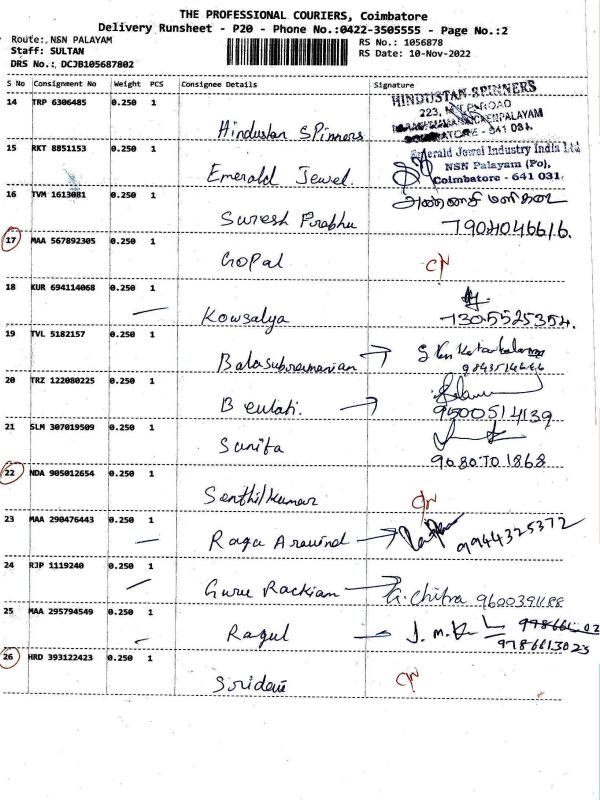 THE PROFESSIONAL COURIERS, Coimbatore
Delivery Runsheet - P20 - Phone No.:0422-3505555 - Page No.:2
Route: NSN PALAYAM
Staff: SULTAN
DRS No.: DCJB105687802
RS No.: 1056878
RS Date: 10-Nov-2022
S No Consignment No Weight PCS Consignee Details Signature
14 TRP 6306485 0.250 1 Hindustan Spinners HINDUSTAN SPINNERS
223,
COIMBATORE - 641 031.
15 RKT 8851153 0.250 1 Emerald Jewel. Emerald Jewel Industry India Ltd
NSN Palayam (Po),
Coimbatore - 641 031.
16 TVM 1613081 0.250 1 Suresh Prabhu 7904046616.
17 MAA 567892305 0.250 1 Gopal
18 KUR 694114068 0.250 1 Kowsalya 7305525354.
19 TVL 5182157 0.250 1 Balasubramanian
20 TRZ 122080225 0.250 1 Beulati. 9500514139
21 SLM 307019509 0.250 1 Sunita
22 NDA 905012654 0.250 1 Senthilkumar
23 MAA 290476443 0.250 1 Ragu Aravind 9944325372
24 RJP 1119240 0.250 1 Guru Rackian G. Chitra
25 MAA 295794549 0.250 1 Ragul 9786613023
26 HRD 393122423 0.250 1 Sridevi